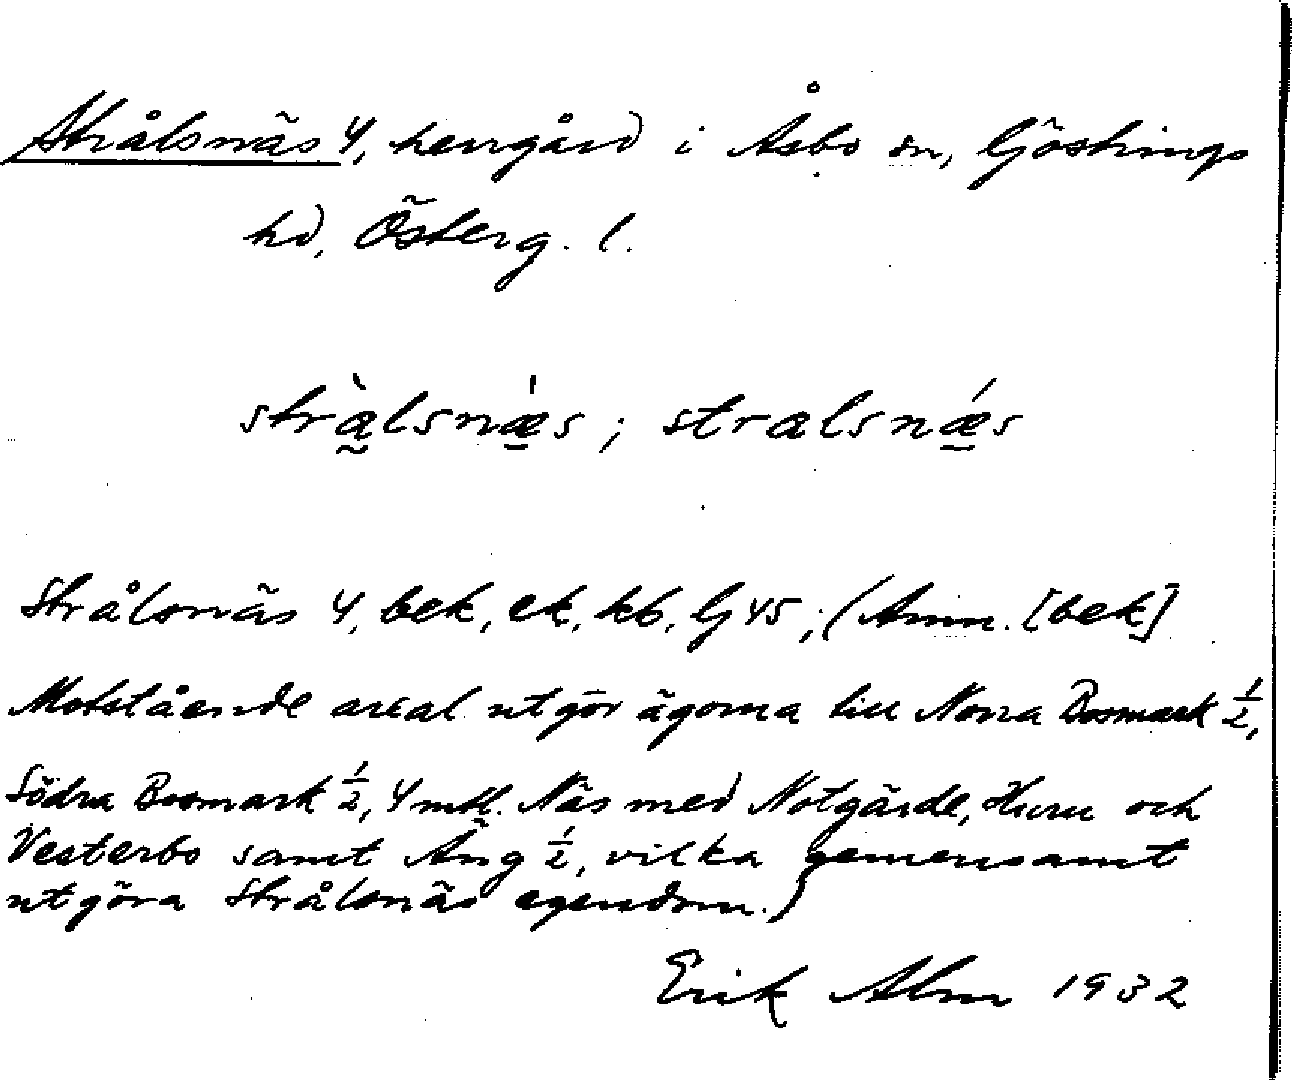 Strålsnäs 4, herrgård i Åsbo sn, Göstrings
hd, Österg. l.
stràlsnǽs; stralsnǽs
Strålsnäs 4, bek, ek, kb, Gj 45; (Anm. [bek]
Motstående areal utgör ägorna till Norra Bosmark ½,
Södra Bosmark ½, 4 mtl. Näs med Notgärde, Huru och
Vesterbo samt Äng ½, vilka gemensamt
utgöra Strålsnäs egendom.)
Erik Alm 1932